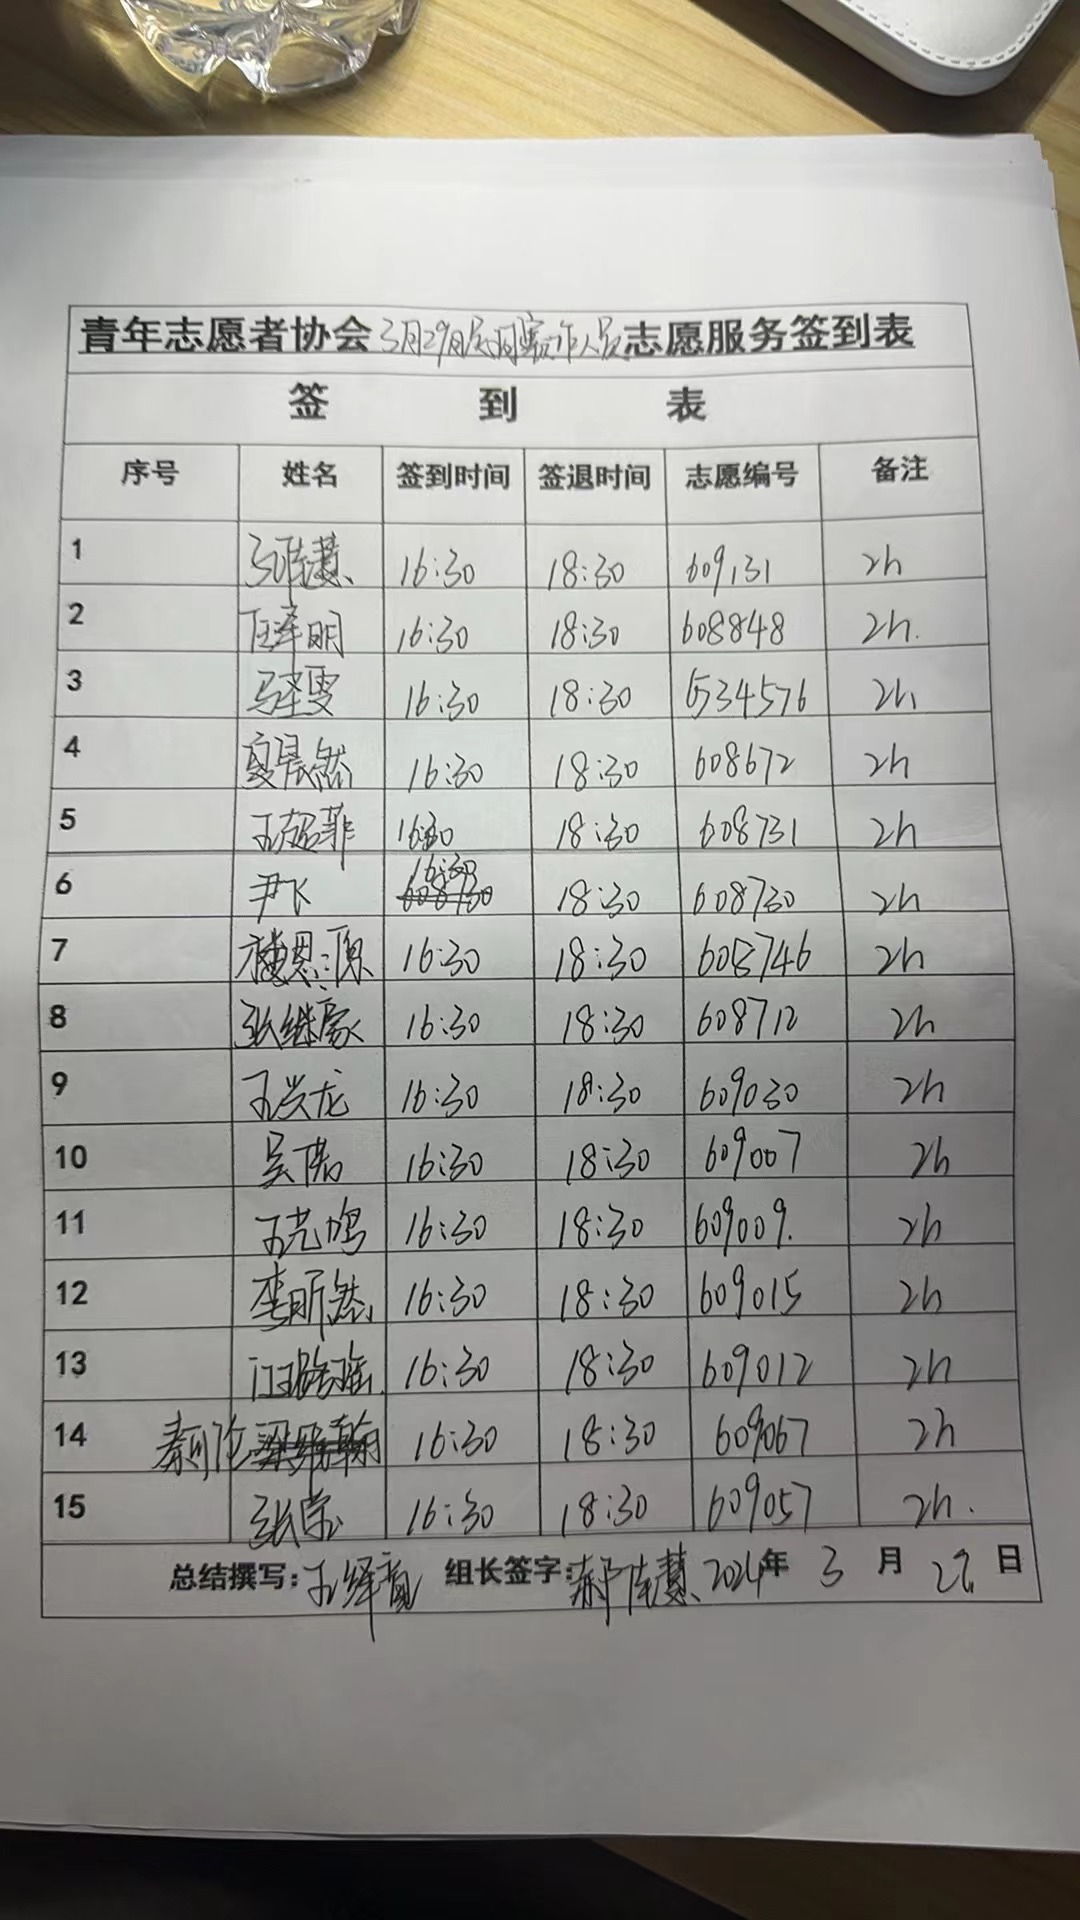 青年志愿者协会3月29日 人员志愿服务签到表
签 到 表
序号 姓名 签到时间 签退时间 志愿编号 备注
1 16:30 18:30 609131 2h
2 任泽明 16:30 18:30 608848 2h.
3 马圣雯 16:30 18:30 6534576 2h
4 夏晨然 16:30 18:30 608672 2h
5 王超菲 16:30 18:30 608731 2h
6 尹飞 16:30 18:30 608730 2h
7 楼恩源 16:30 18:30 608746 2h
8 张继豪 16:30 18:30 608712 2h
9 王兴龙 16:30 18:30 609030 2h
10 吴 16:30 18:30 609007 2h
11 王光鸣 16:30 18:30 609009. 2h
12 李昕然 16:30 18:30 609015 2h
13 汪璐瑶 16:30 18:30 609012 2h
14 秦可伦 16:30 18:30 609067 2h
15 张荣 16:30 18:30 609057 2h.
总结撰写: 王绎 组长签字: 慧 2024年 3 月 29 日